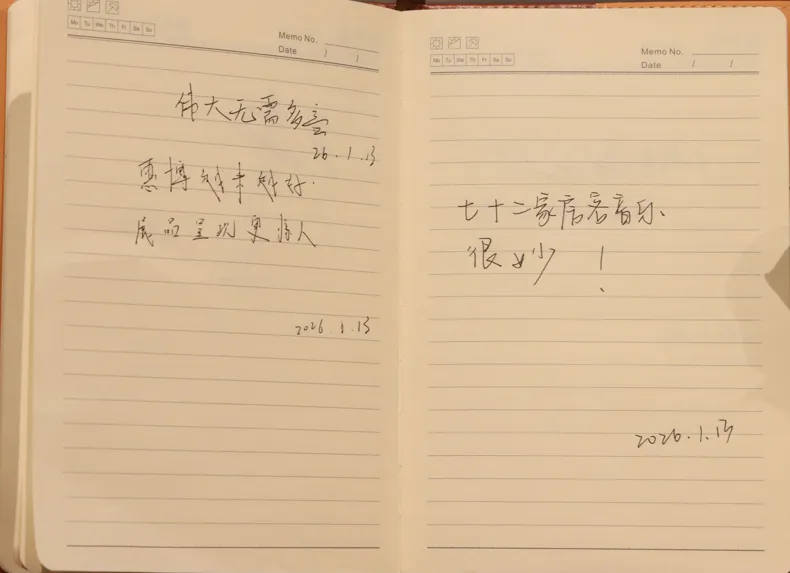 Mo Tu We Th Fr Sa Su
Memo No.
Date / /
伟大无需多言
26.1.13
惠博越来越好.
展品呈现更惊人
2026.1.13
Mo Tu We Th Fr Sa Su
Memo No.
Date / /
七十二家房客音乐、
很妙!
2026.1.13